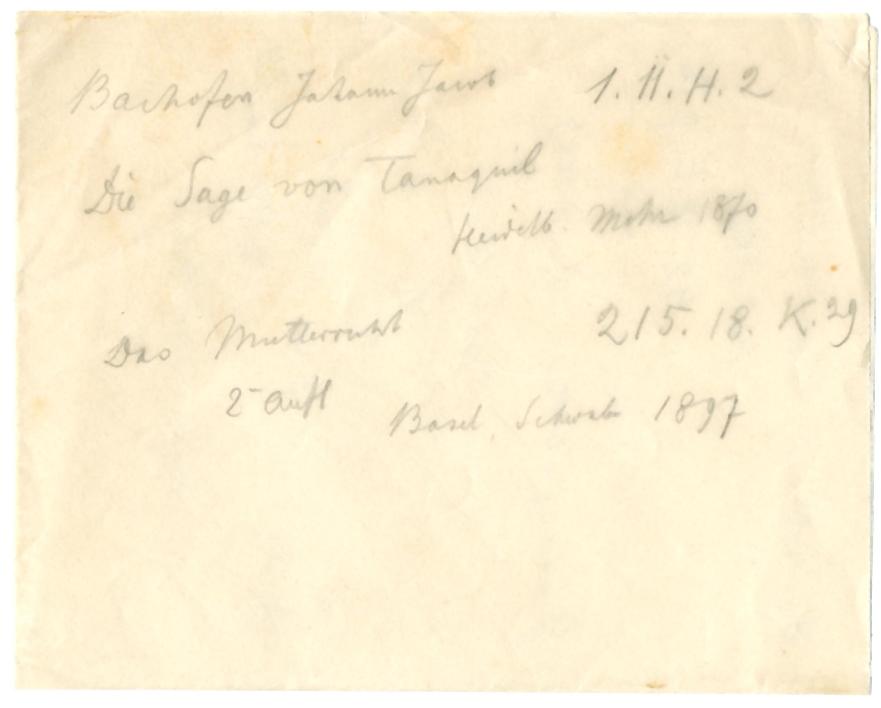 Bachofen Johann Jacob 1. 11. H. 2
Die Sage von Tanaquil
Heidelb. Mohr 1870
Das Mutterrecht 215. 18. K. 29
2ª Aufl
Basel, Schwabe 1897